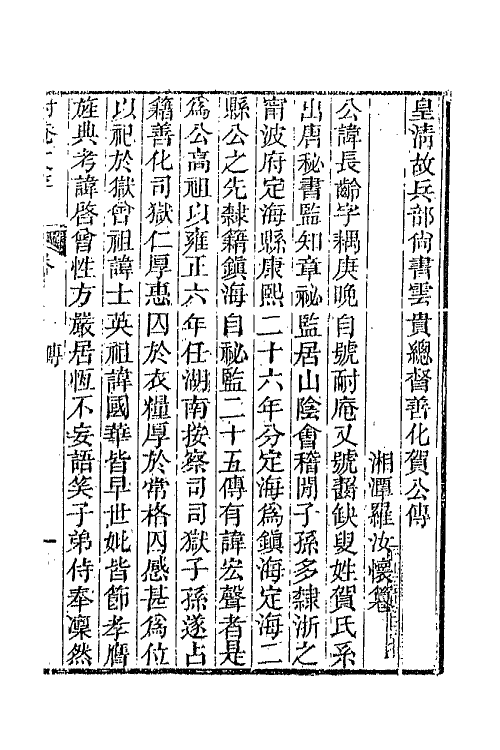 皇清故兵部尚書雲貴總督善化賀公傳
湘潭羅汝懷譔
公諱長齡字耦庚晚自號耐庵又號齧缺叟姓賀氏系
出唐秘書監知章祕監居山陰會稽閒子孫多隸浙之
甯波府定海縣康熙二十六年分定海爲鎮海定海二
縣公之先隸籍鎮海自祕監二十五傳有諱宏聲者是
爲公高祖以雍正六年任湖南按察司司獄子孫遂占
籍善化司獄仁厚惠囚於衣糧厚於常格囚感甚爲位
以祀於獄曾祖諱士英祖諱國華皆早世妣皆節孝膺
旌典考諱啓曾性方嚴居恆不妄語笑子弟侍奉凜然
傳
一